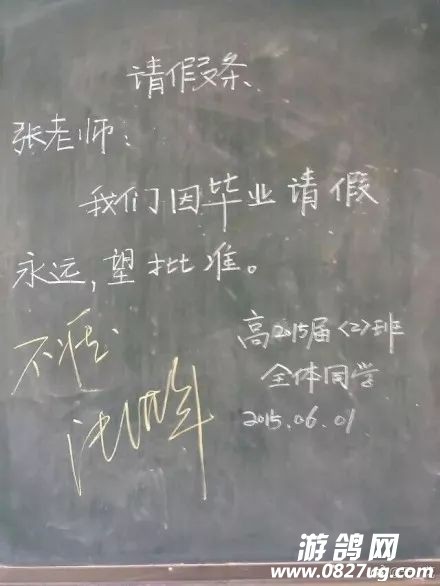 请假条
张老师:
我们因毕业请假
永远,望批准。
高2015届<2>班
全体同学
2015.06.01
不
游鸽网
www.0827ug.com